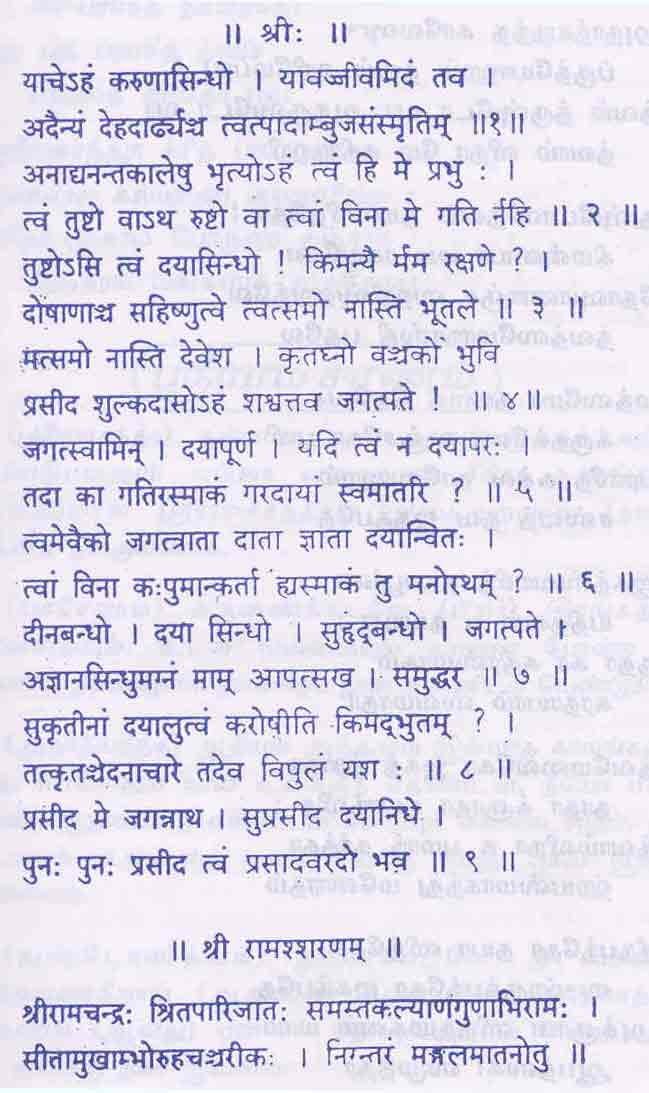 ॥ श्रीः ॥
याचेऽहं करुणासिन्धो । यावज्जीवमिदं तव ।
अदैन्यं देहदार्ढ्यञ्च त्वत्पादाम्बुजसंस्मृतिम् ॥१॥
अनाद्यनन्तकालेषु भृत्योऽहं त्वं हि मे प्रभु : ।
त्व तुष्टो वाऽथ रुष्टो वा त्वां विना मे गति र्नहि ॥ २ ॥
तुष्टोऽसि त्वं दयासिन्धो ! किमन्यै र्मम रक्षणे ? ।
दोषाणाञ्च सहिष्णुत्वे त्वत्समो नास्ति भूतले ॥ ३ ॥
मत्समो नास्ति देवेश । कृतघ्नो वञ्चको भुवि
प्रसीद शुल्कदासोऽहं शश्वत्तव जगत्पते । ॥ ४ ॥
जगत्स्वामिन् । दयापूर्ण । यदि त्वं न दयापरः ।
तदा का गतिरस्माकं गरदायां स्वमातरि ? ॥ ५ ॥
त्वमेवैको जगत्त्राता दाता ज्ञाता दयान्वितः ।
त्वां विना कःपुमान्कर्ता ह्यस्माकं तु मनोरथम् ? ॥ ६ ॥
दीनबन्धो । दया सिन्धो । सुहृद्बन्धो । जगत्पते ।
अज्ञानसिन्धुमग्नं माम् आपत्सख । समुद्धर ॥ ७ ॥
सुकृतीनां दयालुत्वं करोषीति किमद्भुतम् ? ।
तत्कृतञ्चेदनाचारे तदेव विपुल यश : ॥ ८ ॥
प्रसीद मे जगन्नाथ । सुप्रसीद दयानिधे ।
पुनः पुनः प्रसीद त्वं प्रसादवरदो भव ॥ ९ ॥
॥ श्री रामश्शरणम् ॥
श्रीरामचन्द्रः श्रितपारिजातः समस्तकल्याणगुणाभिरामः ।
सीतामुखाम्भोरुहचञ्चरीकः । निरन्तरं मङ्गलमातनोतु ॥